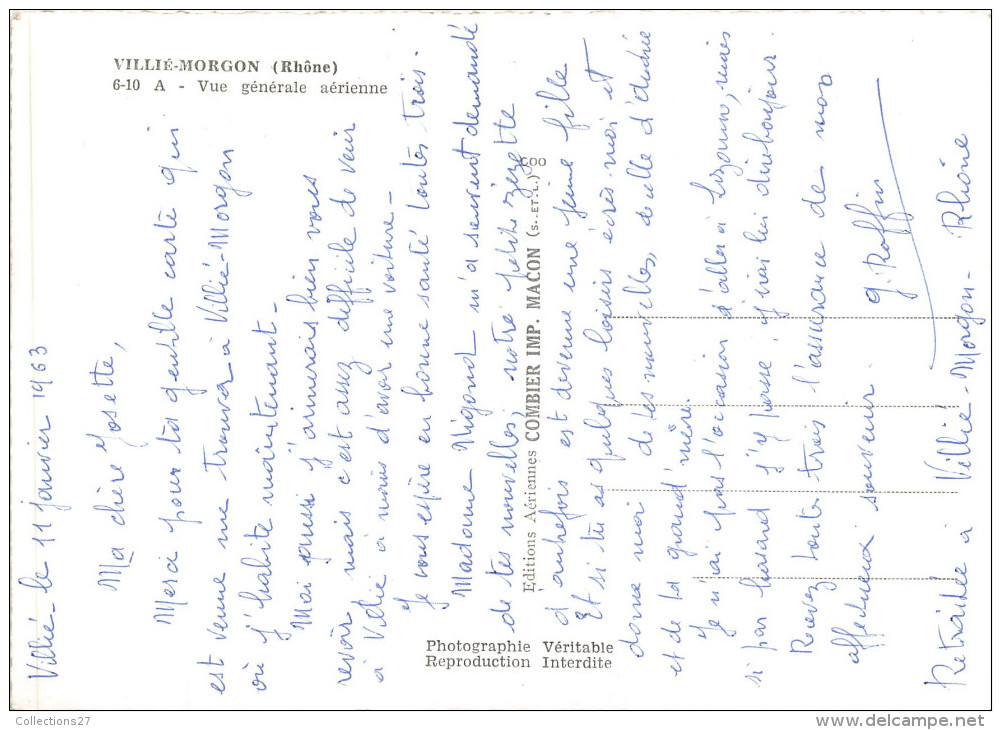 VILLIÉ-MORGON (Rhône)
6-10 A - Vue générale aérienne
Villié - le 11 janvier 1963
Ma chère Josette,
Merci pour ta gentille carte qui
est venue me trouver à Villié-Morgon
où j'habite maintenant -
Moi aussi j'aimerais bien vous
revoir mais c'est assez difficile de venir
à Villié à moins d'avoir une voiture -
Je vous espère en bonne santé toutes trois.
Madame Migond m'a souvent demandé
de tes nouvelles, notre petite zézette
d'autrefois est devenue une jeune fille
Et si tu as quelques loisirs écris-moi et
donne moi de tes nouvelles, de celle d'Eudxie
et de ta grand'mère.
Je n'ai pas l'occasion d'aller à mais
si par hasard j'y passe, j'irai lui dire bonjour.
Recevez toutes trois l'assurance de mon
affectueux souvenir.
G. Roffin
Retraitée à Villié-Morgon - Rhône
Editions Aériennes COMBIER IMP. MACON (S.-ET-L.) COO
Photographie Véritable
Reproduction Interdite
Collections27
www.delcampe.net